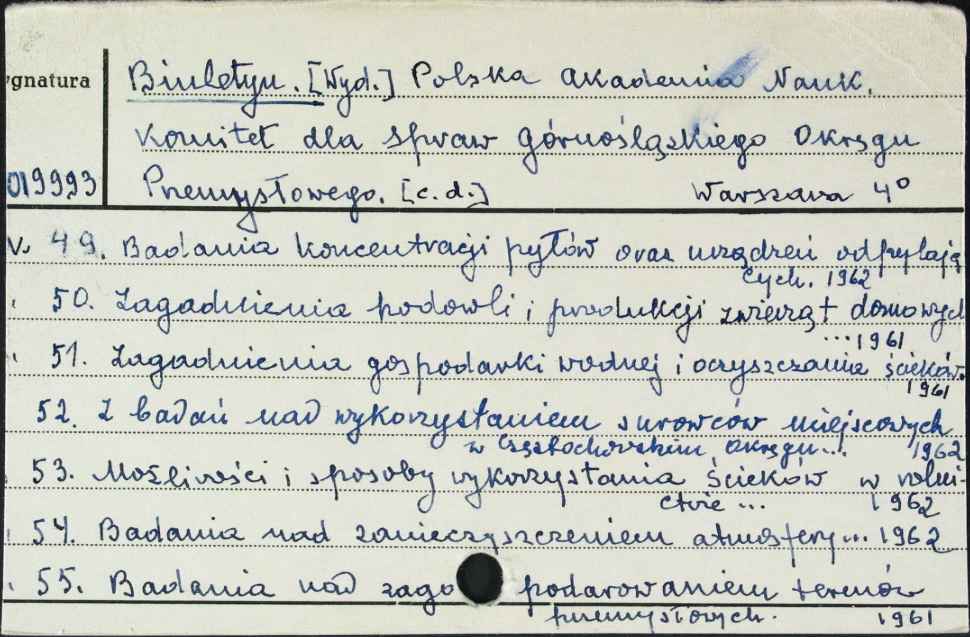 ygnatura
Biuletyn. [Wyd.] Polska Akademia Nauk.
Komitet dla Spraw Górnośląskiego Okręgu
019993 Przemysłowego. [c.d.] Warszawa 4°
V. 49. Badania koncentracji pyłów oraz urządzeń odpylają
cych. 1962
50. Zagadnienia hodowli i produkcji zwierząt domowych
...1961
51. Zagadnienia gospodarki wodnej i oczyszczania ścieków.
1961
52. Z badań nad wykorzystaniem surowców miejscowych
w Częstochowskim Okręgu... 1962
53. Możliwości i sposoby wykorzystania ścieków w rolni-
ctwie ... 1962
54. Badania nad zanieczyszczeniem atmosfery... 1962
55. Badania nad zagospodarowaniem terenów
przemysłowych. 1961